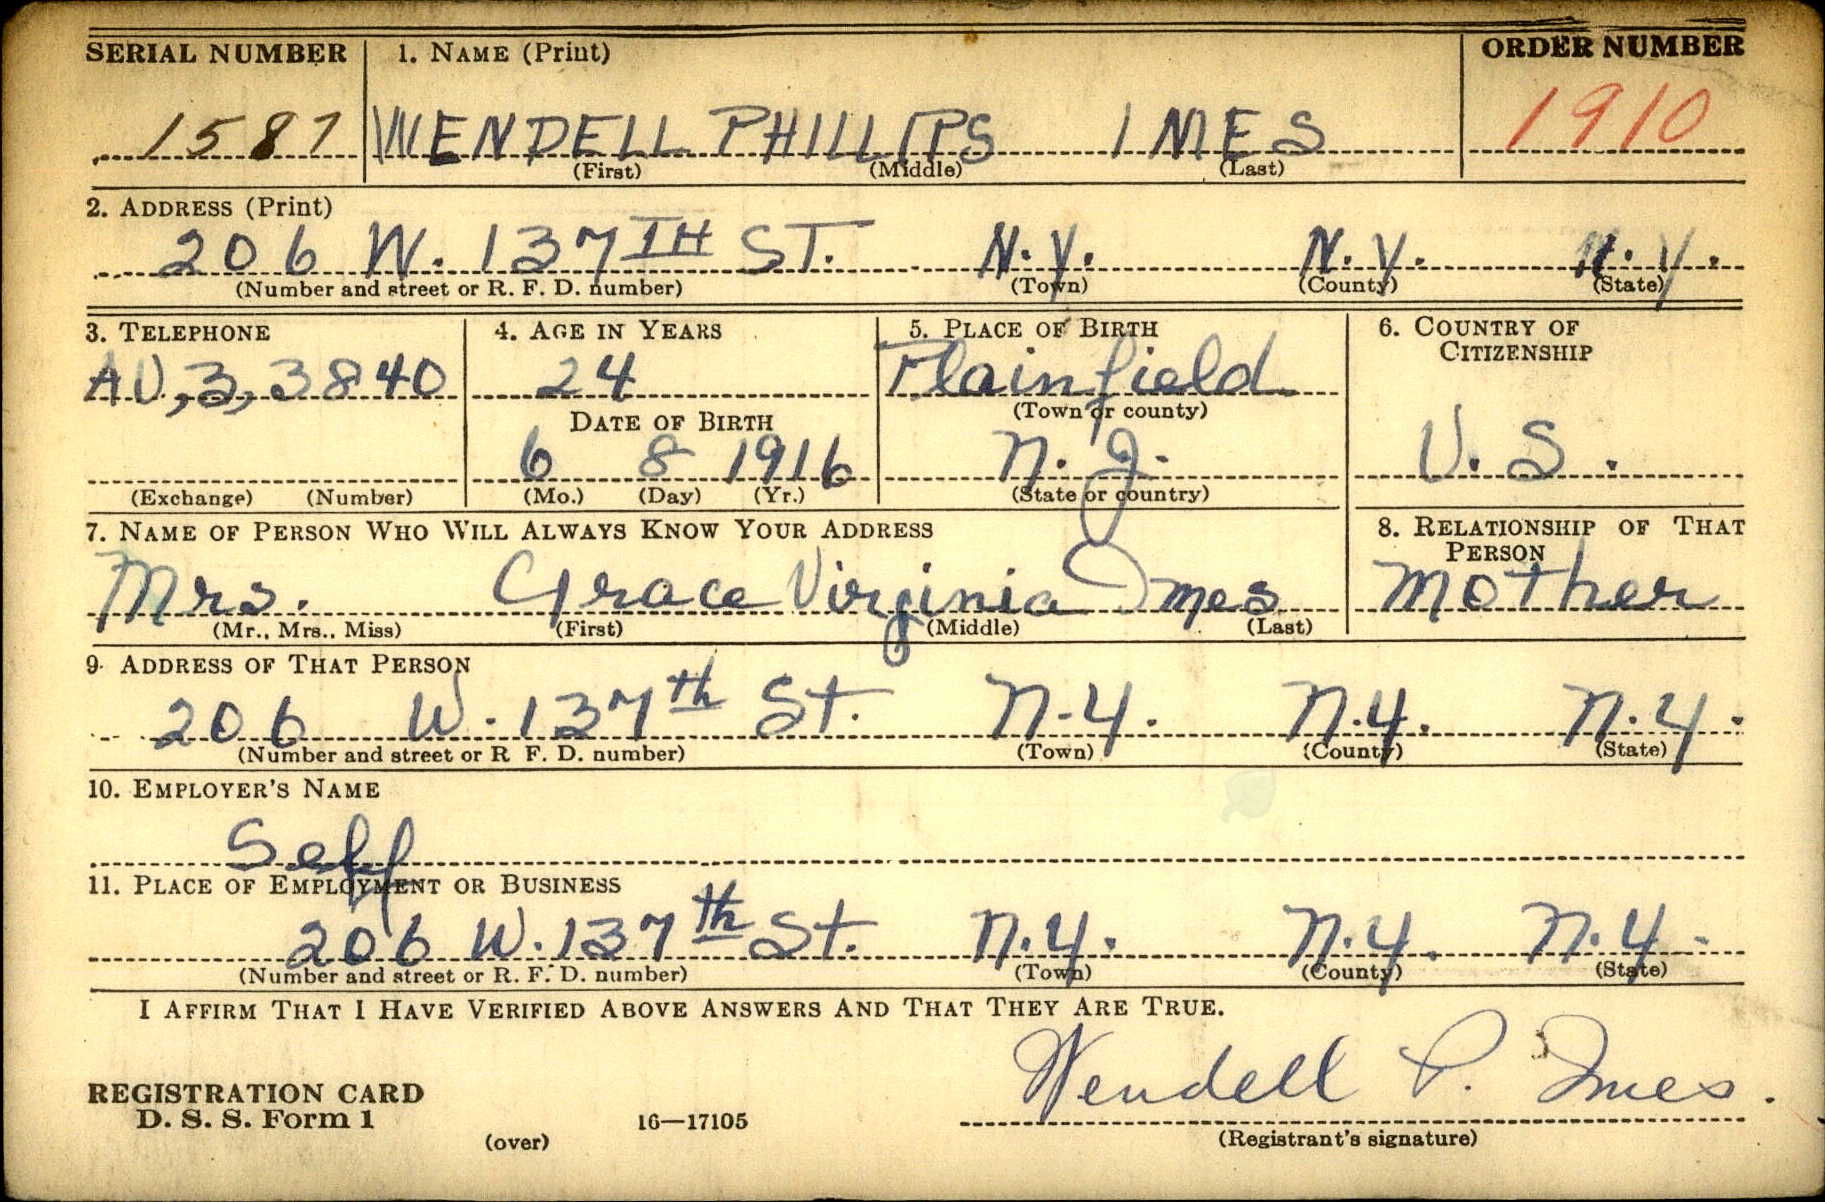 SERIAL NUMBER 1. NAME (Print) ORDER NUMBER
1587 WENDELL PHILLIPS IMES 1910
(First) (Middle) (Last)
2. ADDRESS (Print)
206 W. 137TH ST. N.Y. N.Y. N.Y.
(Number and street or R. F. D. number) (Town) (County) (State)
3. TELEPHONE 4. AGE IN YEARS 5. PLACE OF BIRTH 6. COUNTRY OF
CITIZENSHIP
AU,3,3840 24 Plainfield
(Town or county)
DATE OF BIRTH
6 8 1916 N.J. U.S.
(Exchange) (Number) (Mo.) (Day) (Yr.) (State or country)
7. NAME OF PERSON WHO WILL ALWAYS KNOW YOUR ADDRESS 8. RELATIONSHIP OF THAT
PERSON
Mrs. Grace Virginia Imes Mother
(Mr., Mrs., Miss) (First) (Middle) (Last)
9. ADDRESS OF THAT PERSON
206 W. 137th St. N.Y. N.Y. N.Y.
(Number and street or R F. D. number) (Town) (County) (State)
10. EMPLOYER'S NAME
Self
11. PLACE OF EMPLOYMENT OR BUSINESS
206 W. 137th St. N.Y. N.Y. N.Y.
(Number and street or R. F. D. number) (Town) (County) (State)
I AFFIRM THAT I HAVE VERIFIED ABOVE ANSWERS AND THAT THEY ARE TRUE.
Wendell P. Imes.
REGISTRATION CARD
D. S. S. Form 1 16—17105
(over) (Registrant's signature)